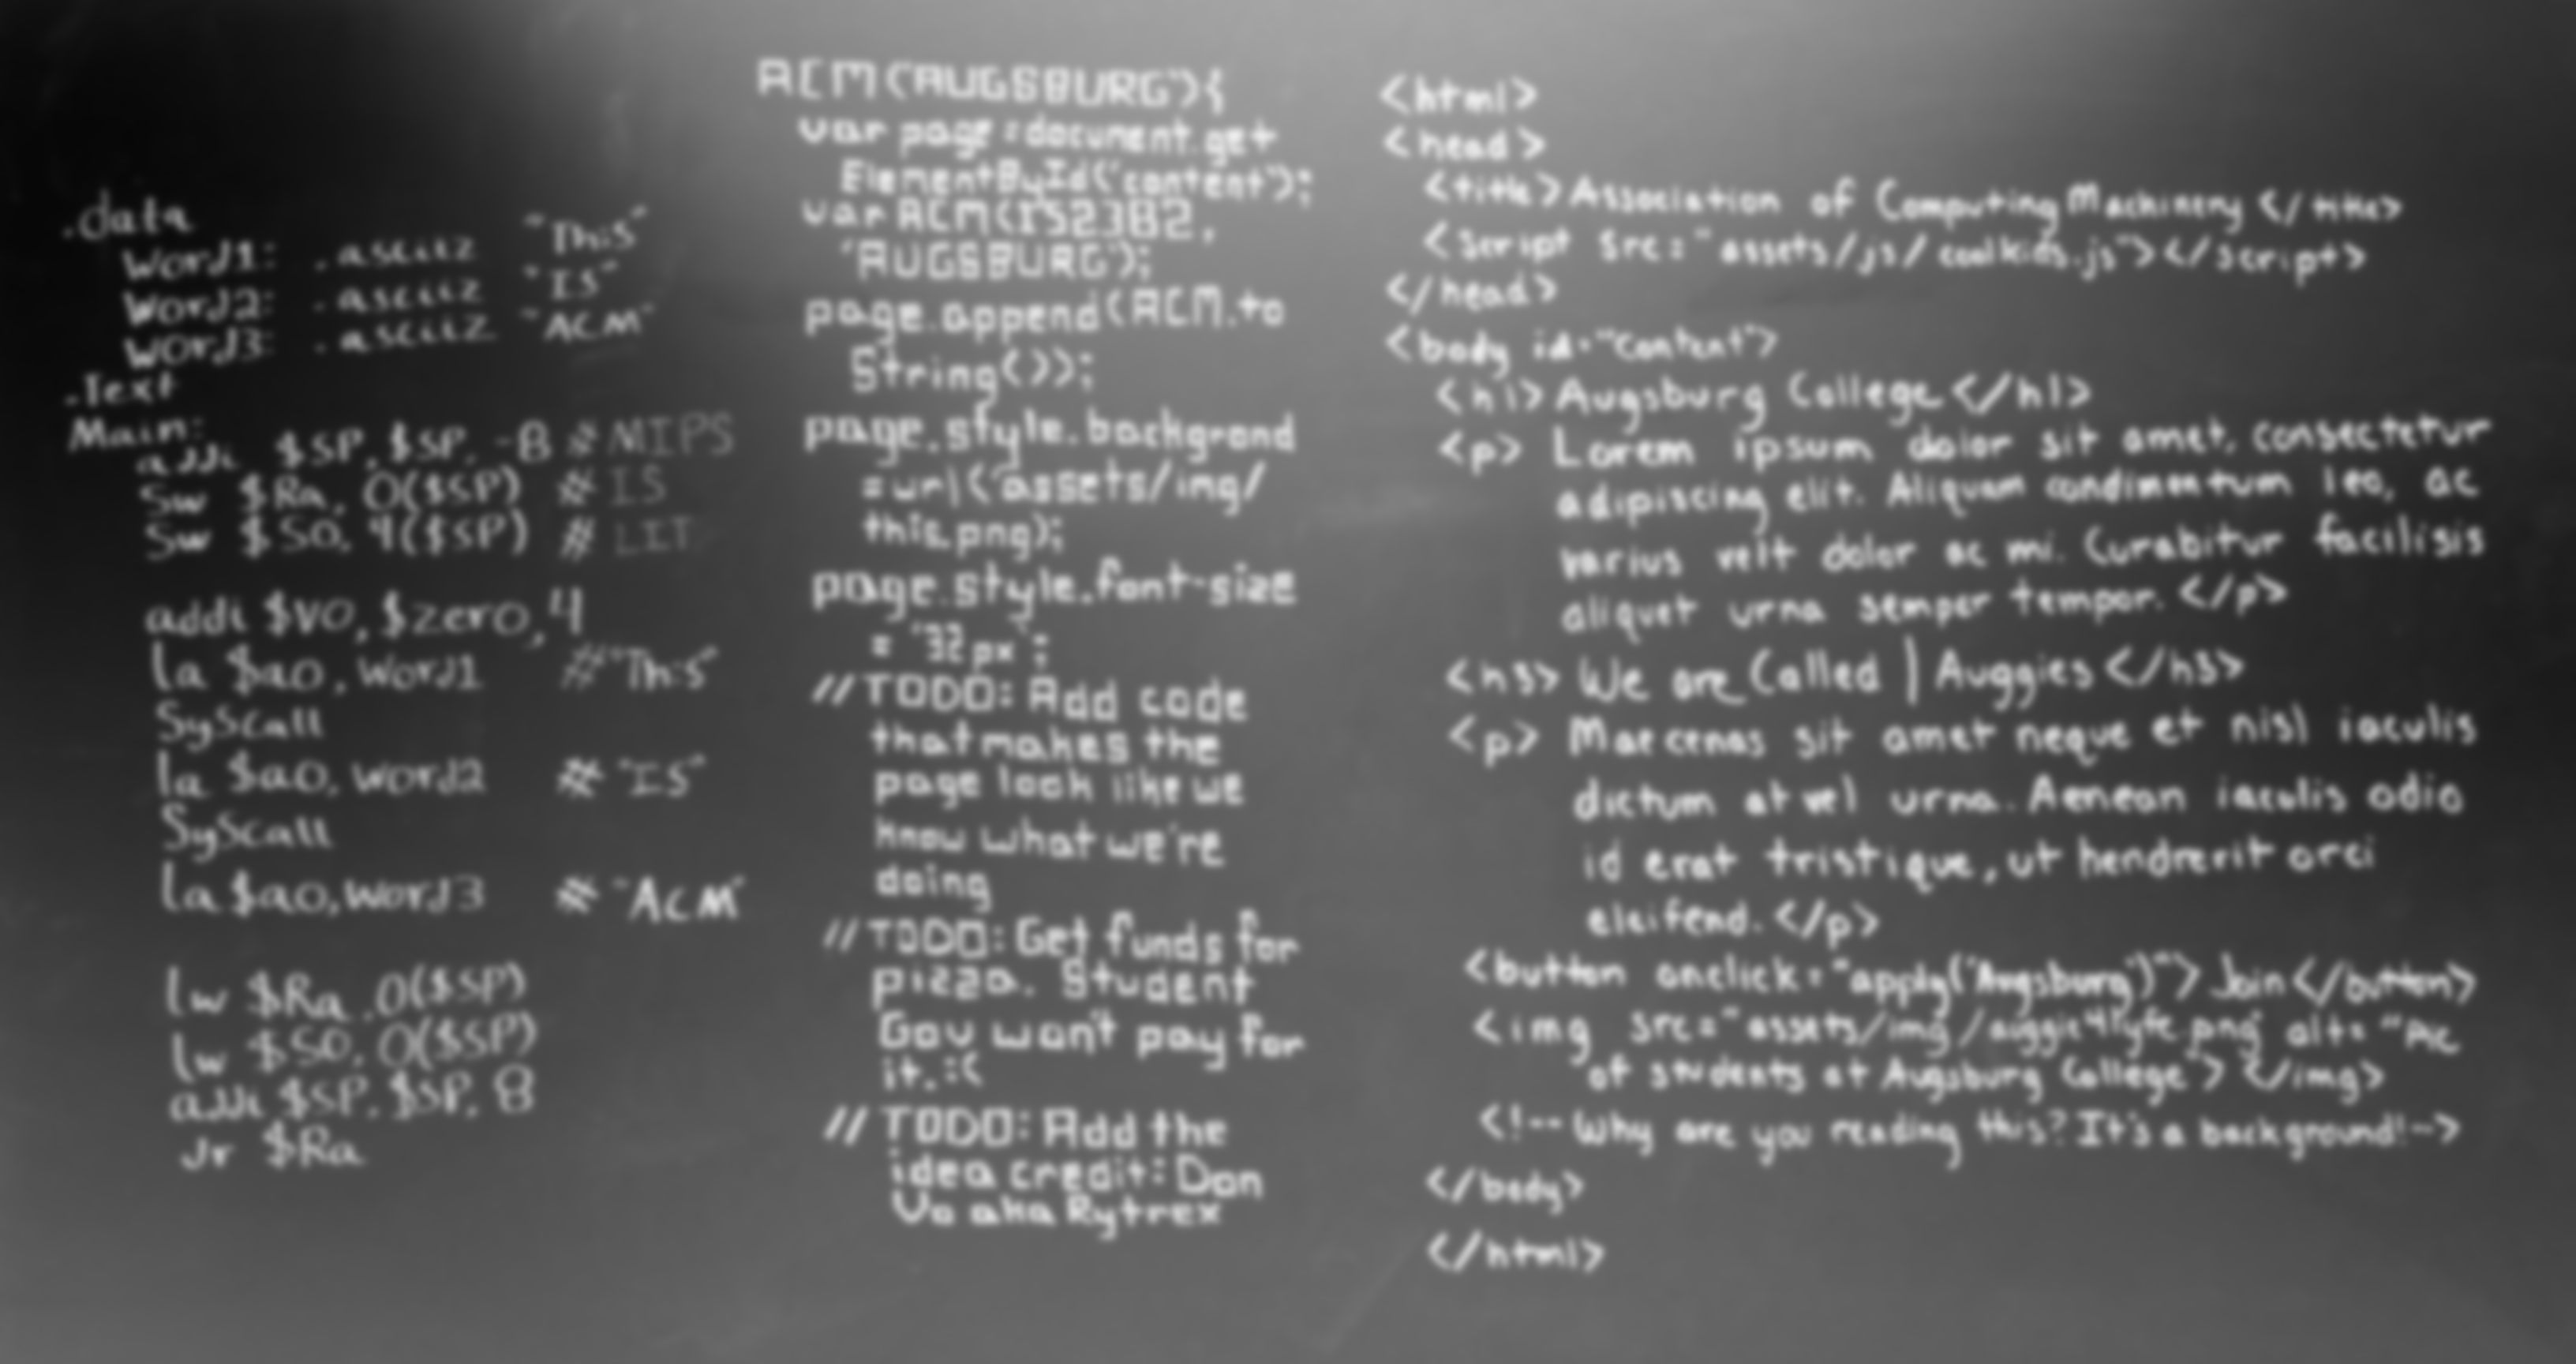 .data
Word1: .asciiz "This"
Word2: .asciiz "IS"
Word3: .asciiz "ACM"
.Text
Main:
addi $SP, $SP, -8 # MIPS
Sw $Ra, 0($SP) # IS
Sw $S0, 4($SP) # LIT
addi $V0, $zero, 4
la $a0, Word1 #"This"
Syscall
la $a0, Word2 # "IS"
Syscall
la $a0, Word3 # "ACM"
lw $Ra, 0($SP)
lw $S0, 0($SP)
addi $SP, $SP, 8
Jr $Ra
ACM('AUGSBURG'){
var page=document.get
ElementById('content');
'AUGSBURG');
page.append(ACM.to
String());
page.style.backgrond
=url('assets/img/
page.style.font-size
= '32px';
//TODO: Add code
that makes the
page look like we
know what we're
doing
//TODO: Get funds for
pizza. Student
Gov won't pay for
it. :(
//TODO: Add the
idea credit: Dan
Vo aka Rytrex
<html>
<head>
<title>Association of Computing Machinery</title>
<script src="assets/js/coolkids.js"></script>
</head>
<body id="content">
<h1>Augsburg College</h1>
<p> Lorem ipsum dolor sit amet, consectetur
adipiscing elit. Aliquam condimentum leo, ac
varius velt dolor ac mi. Curabitur facilisis
aliquet urna semper tempor.</p>
<h3> We are Called | Auggies</h3>
<p> Maecenas sit amet neque et nisl iaculis
dictum at vel urna. Aenean iaculis odio
id erat tristique, ut hendrerit orci
eleifend.</p>
<button onclick="apply('Augsburg')">Join</button>
<img src="assets/img/ alt="Pic
of students at Augsburg College"></img>
<!--Why are you reading this? It's a background!-->
</body>
</html>